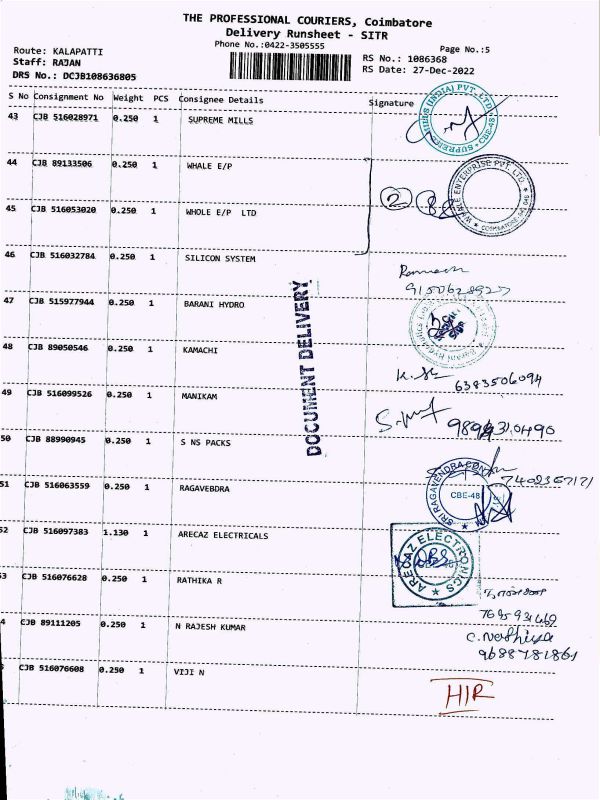 THE PROFESSIONAL COURIERS, Coimbatore
Delivery Runsheet - SITR
Phone No.:0422-3505555
Page No.:5
Route: KALAPATTI
Staff: RAJAN
DRS No.: DCJB108636805
RS No.: 1086368
RS Date: 27-Dec-2022
S No Consignment No Weight PCS Consignee Details Signature
43 CJB 516028971 0.250 1 SUPREME MILLS
SUPREME MILLS (INDIA) PVT. LTD. CBE-48
44 CJB 89133506 0.250 1 WHALE E/P
WHALE ENTERPRISE PVT. LTD. COIMBATORE
2
45 CJB 516053020 0.250 1 WHOLE E/P LTD
46 CJB 516032784 0.250 1 SILICON SYSTEM
DOCUMENT DELIVERY
47 CJB 515977944 0.250 1 BARANI HYDRO
48 CJB 89050546 0.250 1 KAMACHI
6383506094
49 CJB 516099526 0.250 1 MANIKAM
50 CJB 88990945 0.250 1 S NS PACKS
51 CJB 516063559 0.250 1 RAGAVEBDRA
SRI RAGAVENDRA CBE-48
52 CJB 516097383 1.130 1 ARECAZ ELECTRICALS
ARECAZ ELECTRONICS
53 CJB 516076628 0.250 1 RATHIKA R
7695931469
4 CJB 89111205 0.250 1 N RAJESH KUMAR
C. Nathiya
9688781861
CJB 516076608 0.250 1 VIJI N
HIR